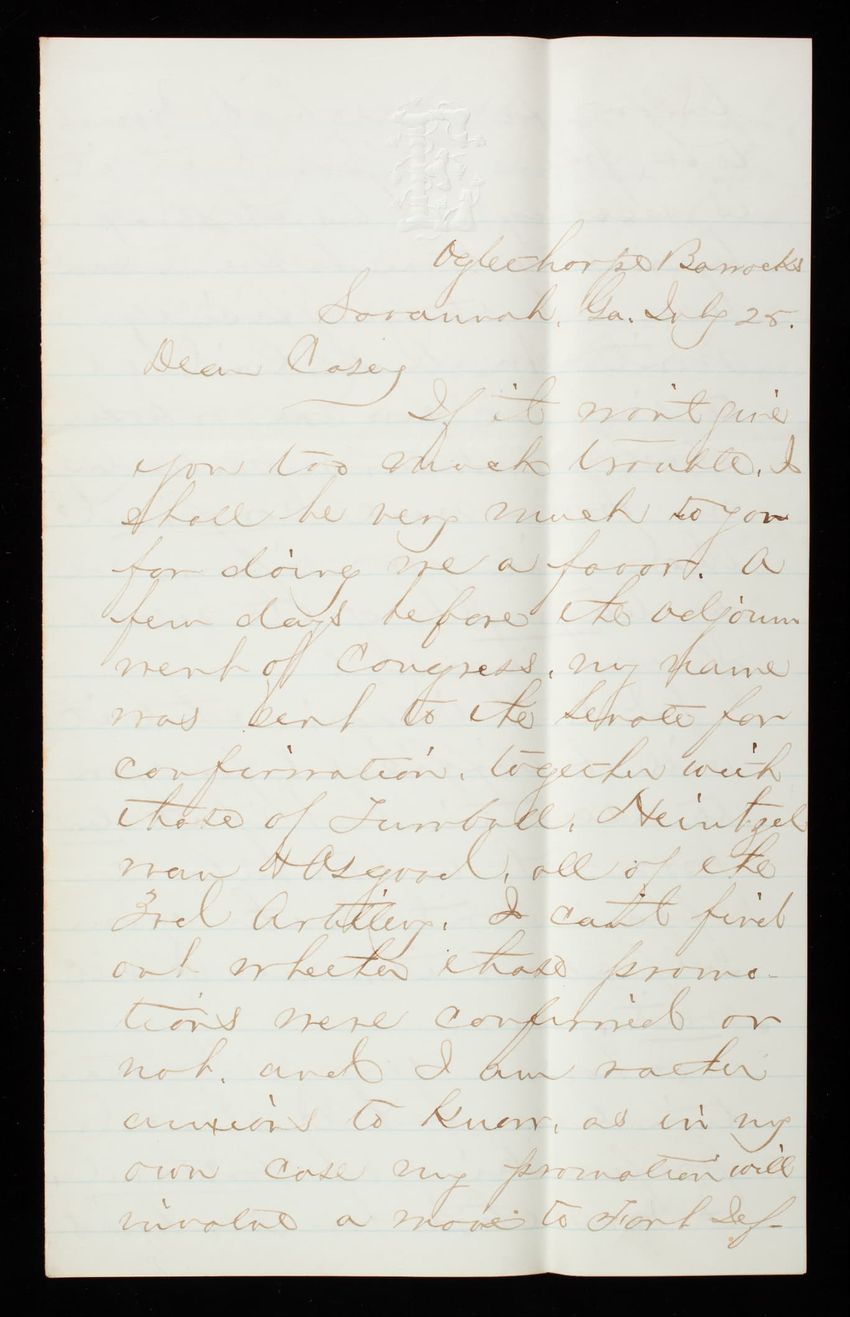 Oglethorpe Barracks
Savannah, Ga. July 25.
Dear Casey
If it won't give
you too much trouble, I
shall be very much to you
for doing me a favor. A
few days before the adjourn
ment of Congress, my name
was sent to the Senate for
confirmation, together with
those of Turnbull, Heintzel
man & Osgood, all of the
3rd Artillery. I can't find
out whether those promo-
tions were confirmed or
not, and I am rather
anxious to know, as in my
own case my promotion will
involve a move to Fort Jef-